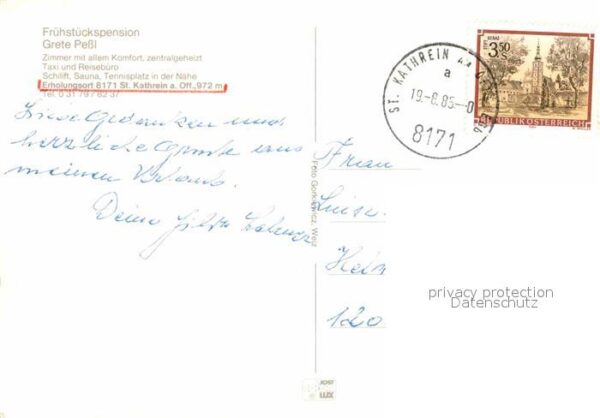 Frühstückspension
Grete Peßl
Zimmer mit allem Komfort, zentralgeheizt
Taxi und Reisebüro
Schilift, Sauna, Tennisplatz in der Nähe
Erholungsort 8171 St. Kathrein a. Off., 972 m
Tel. 0 31 79 / 82 37
Liebe Gedanken und
herzliche Grüße aus
meinem Urlaub.
Deine
Foto Gorkiewicz, Weiz
ST. KATHREIN
a
19.-8.85.-0
8171
3.50
S
REPUBLIK ÖSTERREICH
Frau
Luise
120
privacy protection
Datenschutz